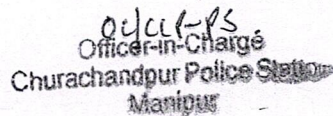 OC/CCP-PS
Officer-in-Charge
Churachandpur Police Station
Manipur